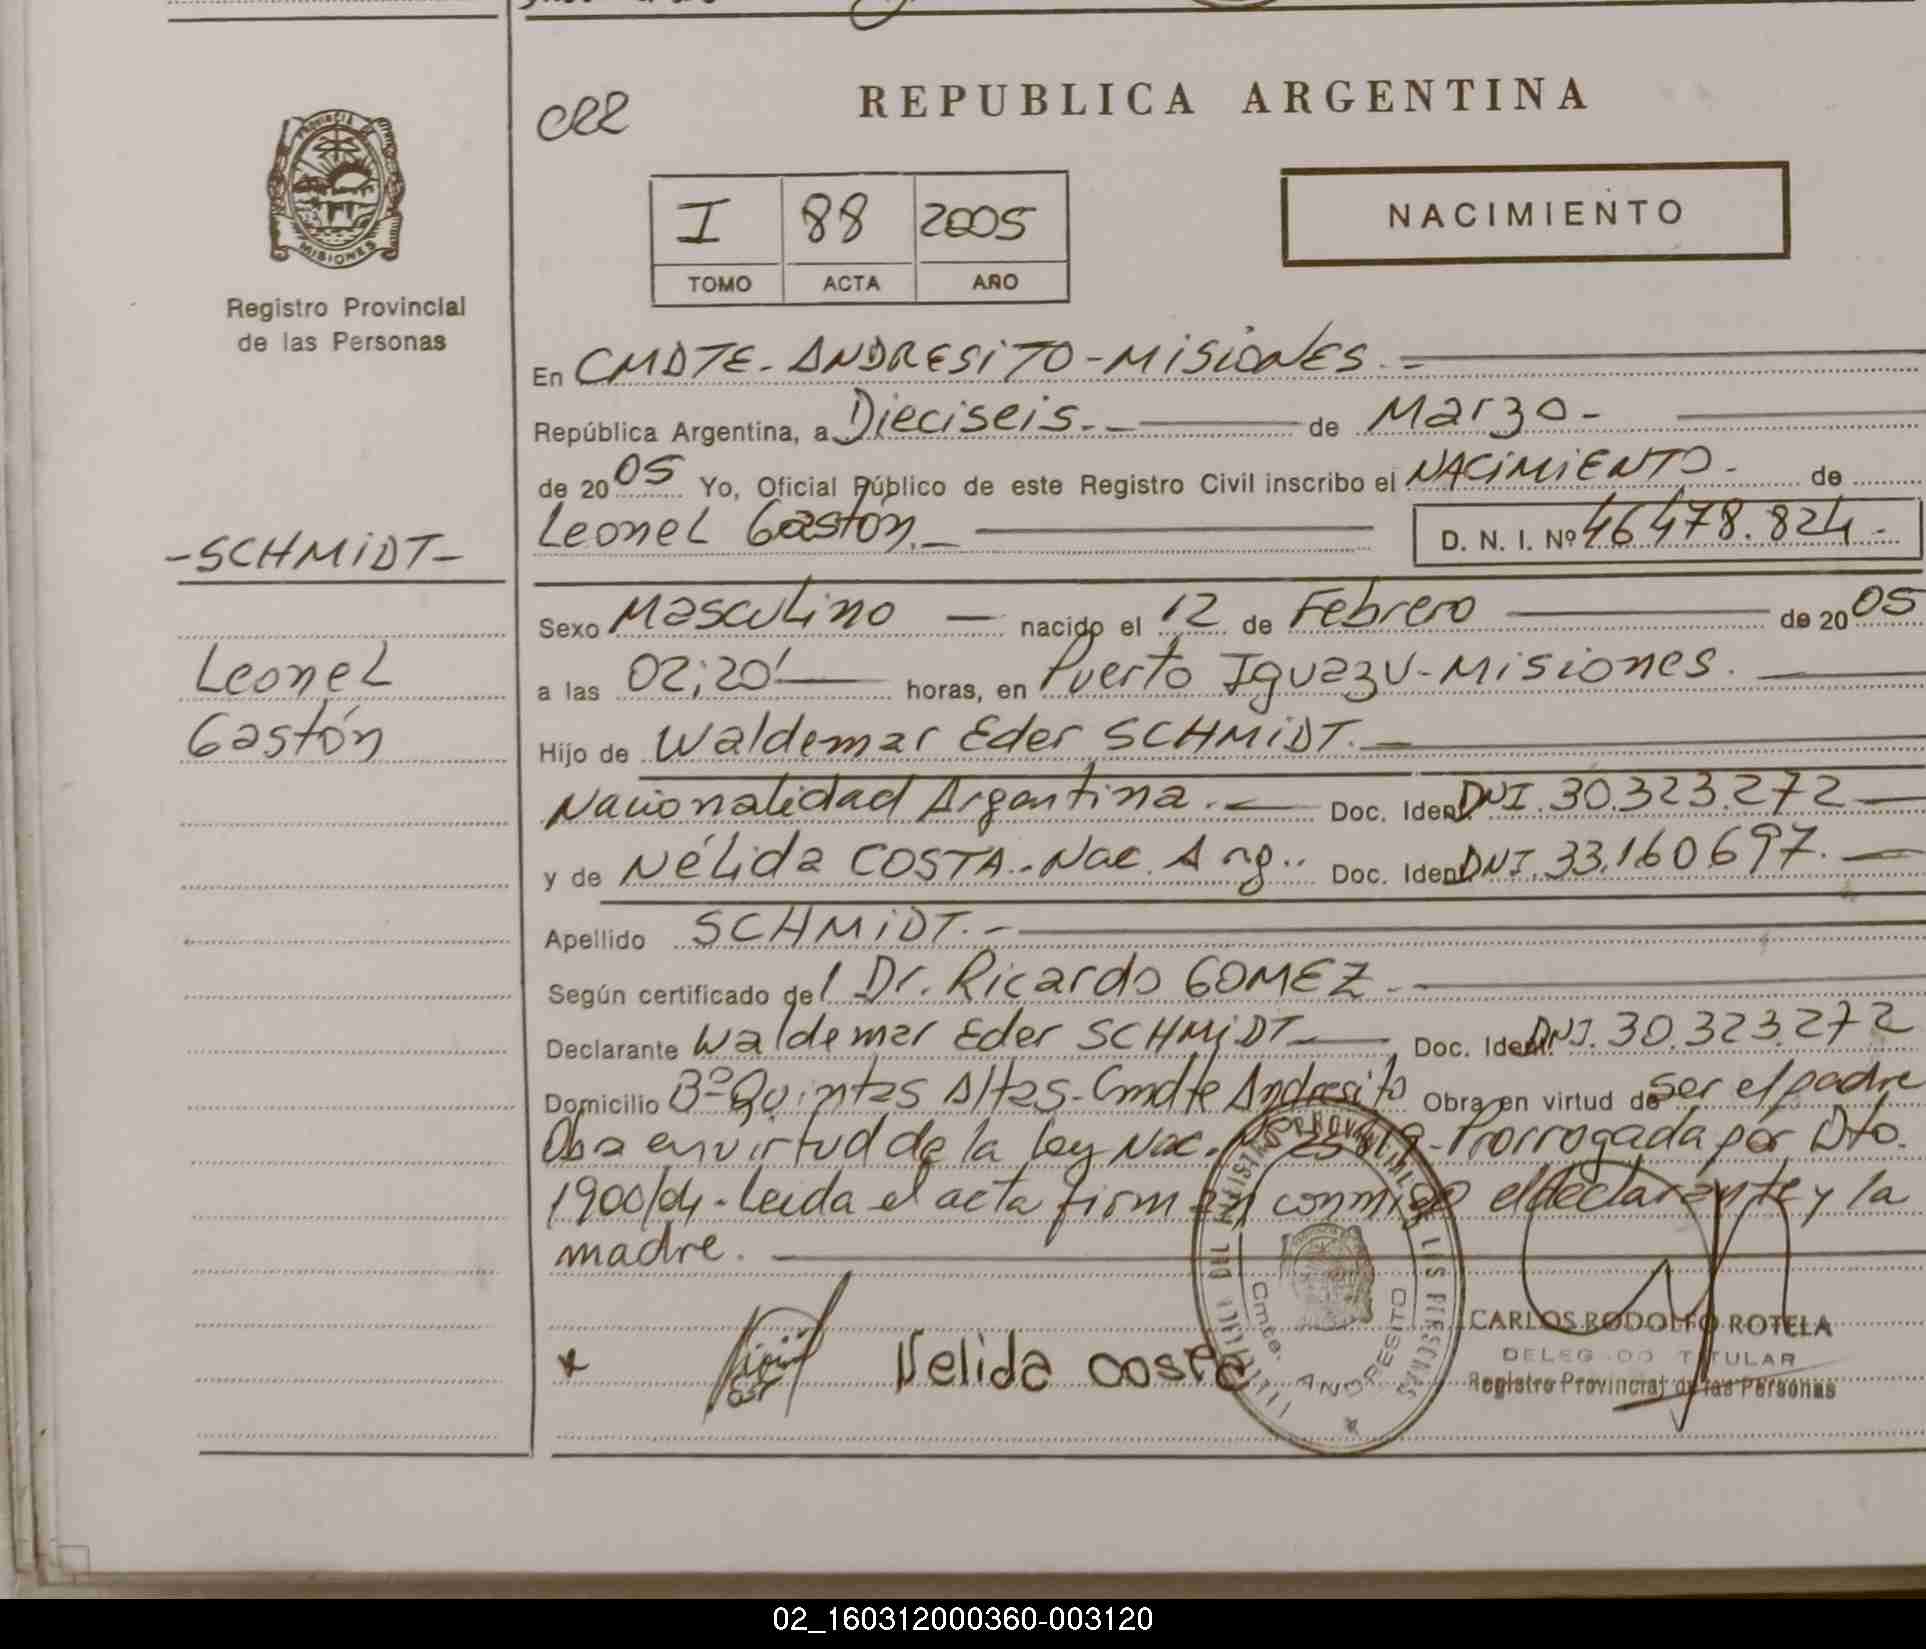 REPUBLICA ARGENTINA
I 88 2005
TOMO ACTA AÑO
NACIMIENTO
PROVINCIA DE
MISIONES
Registro Provincial
de las Personas
-SCHMIDT-
Leonel
Gastón
En CMDTE. ANDRESITO-MISIONES.-
República Argentina, a Dieciseis.- de Marzo-
de 2005 Yo, Oficial Público de este Registro Civil inscribo el NACIMIENTO- de
Leonel Gastón.- D. N. I. Nº 46478.824-
Sexo Masculino — nacido el 12 de Febrero de 2005
a las 02;20' horas, en Puerto Iguazu-Misiones.
Hijo de Waldemar Eder SCHMIDT.-
Nacionalidad Argentina.- Doc. Ident. DNI. 30.323.272
y de Nélida COSTA.-Nac. Arg.. Doc. Ident. DNI. 33.160697.
Apellido SCHMIDT.-
Según certificado del Dr. Ricardo GOMEZ.-
Declarante Waldemar Eder SCHMIDT Doc. Ident. DNI. 30.323.272
Domicilio Bº Quintas Altas-Cmdte Andresito Obra en virtud de ser el padre
Obra en virtud de la ley Nac. -Prorrogada por Dto.
1900/04-Leida el acta firman conmigo el declarante y la
madre.
Nelida costa
REGISTRO PROVINCIAL DE LAS PERSONAS
Cmte. ANDRESITO
CARLOS RODOLFO ROTELA
DELEGADO TITULAR
Registro Provincial de las Personas
02_160312000360-003120